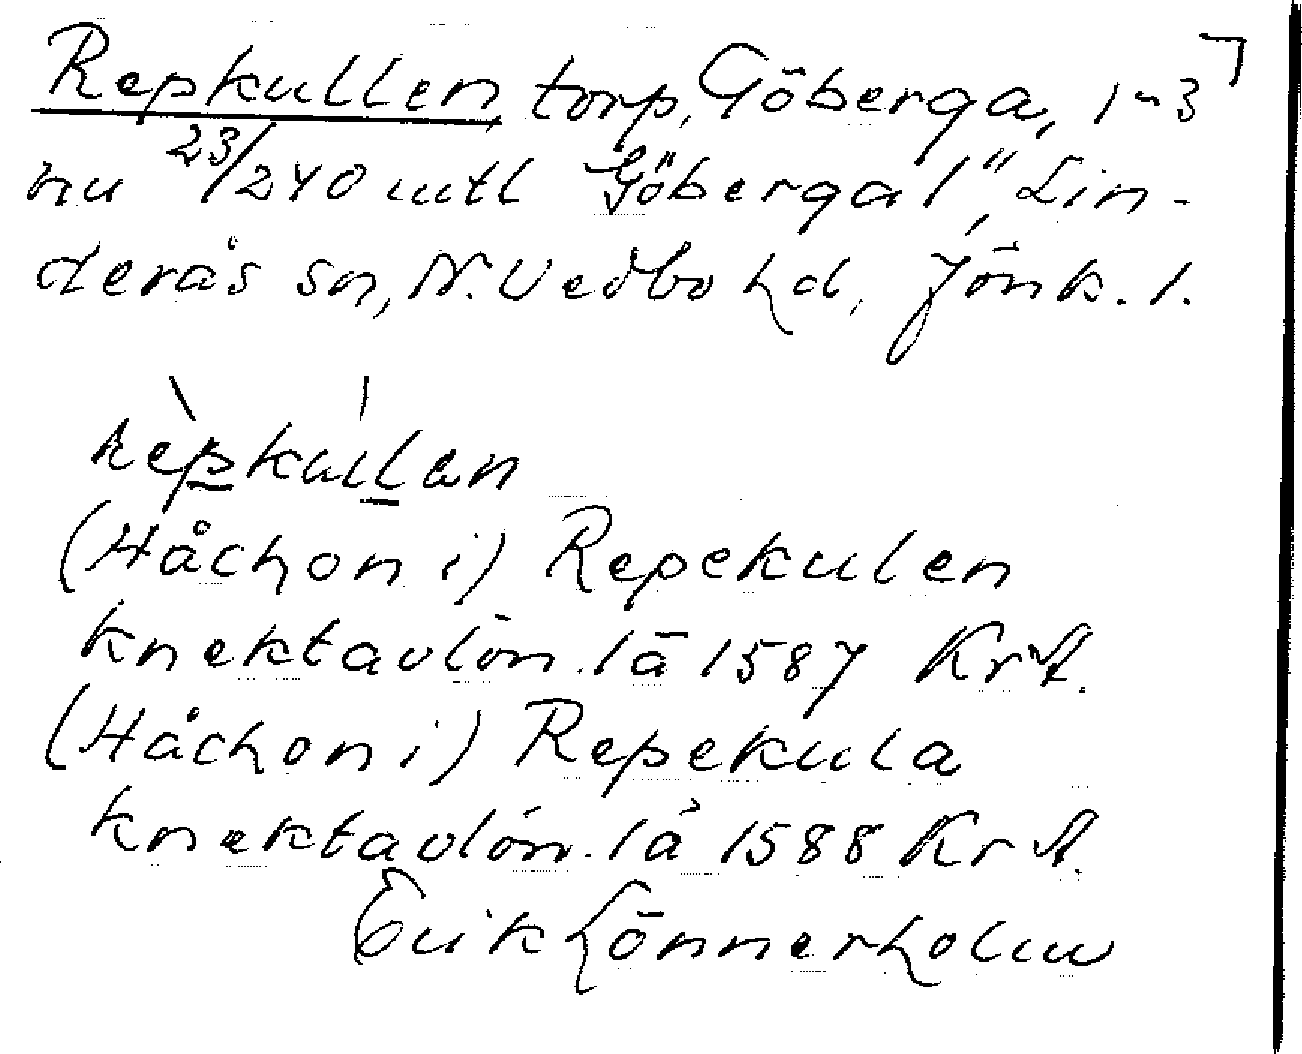 Repkullen, torp, Göberga, 1-3
nu 23/240 mtl "Göberga 1", Lin-
derås sn, N. Vedbo hd, Jönk. l.
rèpkúllan
(Håchon i) Repekulen
knektavlön. lä 1587 KrA.
(Håchon i) Repekula
knektavlön. lä 1588 KrA.
Erik Lönnerholm